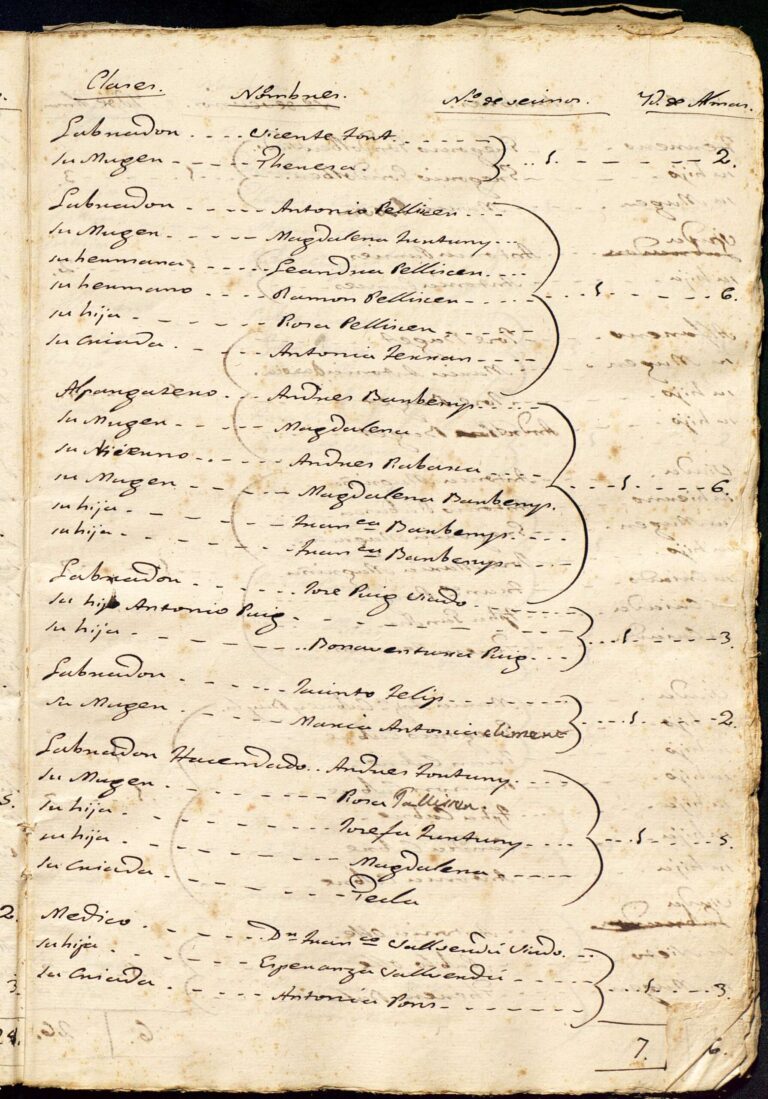 Clases. Nombres. No. de vecinos. Yd. de Almas.
Labrador .... Vicente Font ... 1 .... 2.
su Muger .... Theresa.
Labrador .... Antonio Pellicer ...
su Muger .... Magdalena Funtuny ...
su hermana .... Leandra Pellicer ...
su hermano .... Ramon Pellicer ... 1 .... 6.
su hija .... Rosa Pellicer ...
su criada .... Antonia Ferran ...
Alpargatero .... Andres Barbenys ...
su Muger .... Magdalena
su .... Andres Rabasa ...
su Muger .... Magdalena Barbenys. 1 .... 6.
su hija .... Franca Barbenys ...
su hija .... Franca Barbenys ...
Labrador .... Jose Puig Viudo ...
su hijo Antonio Puig ....
su hija .... Bonaventura Puig ... 1 .... 3.
Labrador .... Jacinto Felip ...
su Muger .... Maria Antonia 1 .... 2.
Labrador Hacendado .. Andres Fontuny ...
su Muger .... Rosa
su hija .... Josefa Funtuny ... 1 .... 5.
su hija .... Magdalena ...
su criada .... Tecla
Medico .... Dn Franco Vallverdú Viudo ...
su hija .... Esperanza Vallverdú ... 1 .... 3.
su criada .... Antonia Pons ...
7. 6.